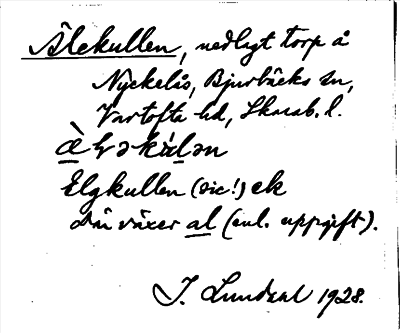 Älekullen, nedlagt torp å
Nyckelås, Bjurbäcks sn,
Vartofta hd, Skarab. l.
Elgkullen (sic!) ek
där växer al (enl. uppgift).
J. Lundahl 1928.